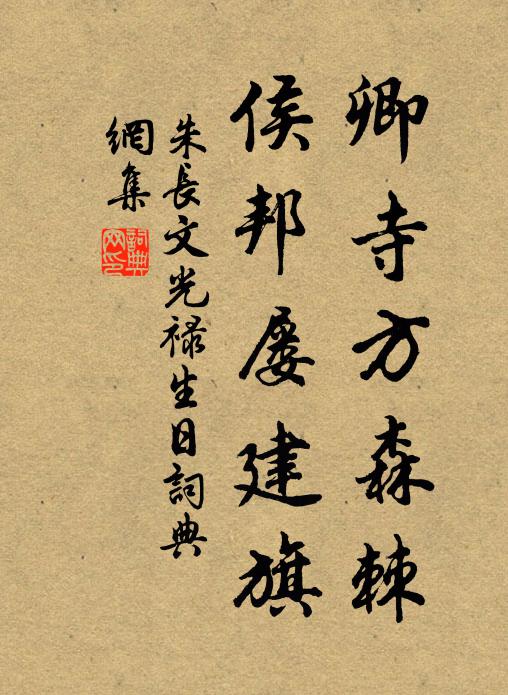 卿寺方森棘
侯邦屡建旗
朱長文光禄生日詞典
網集
詞典
网印